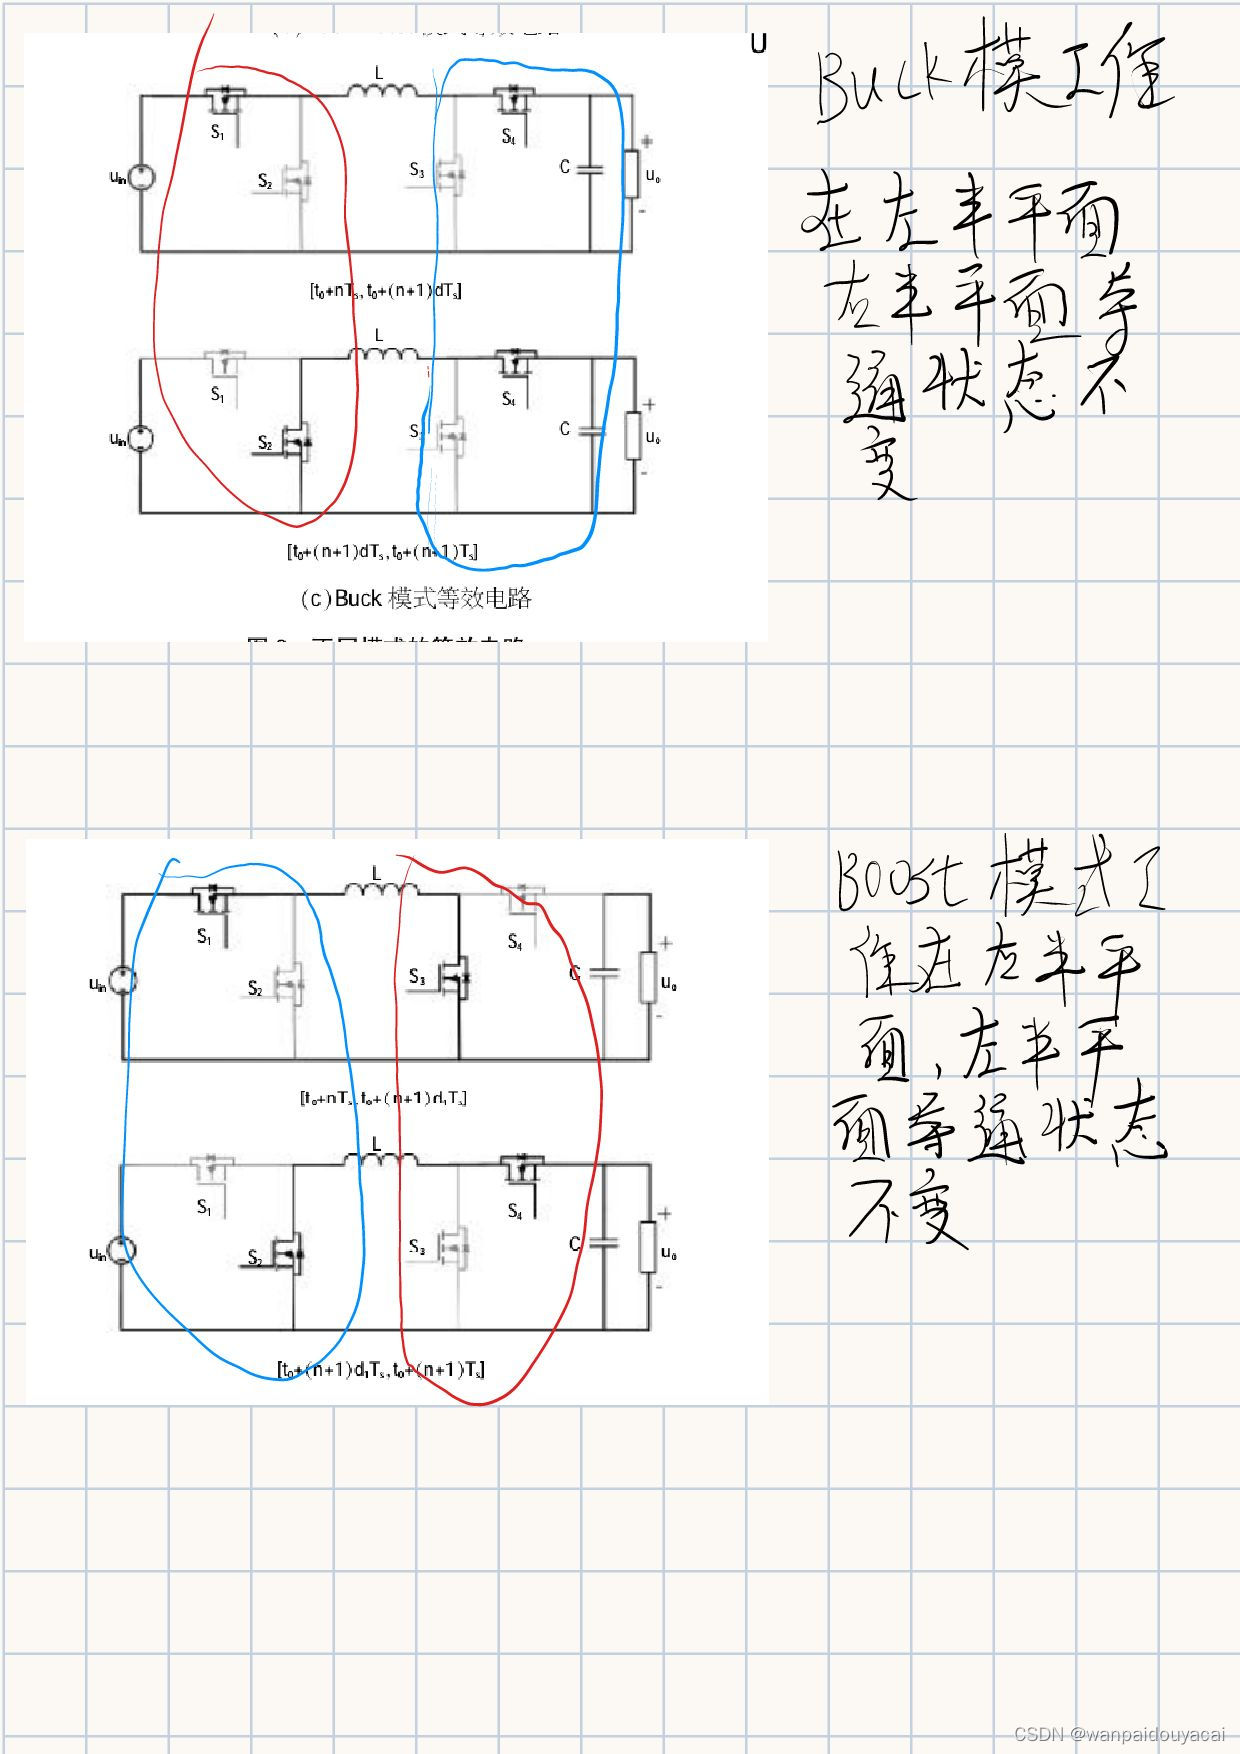 U
L
S₁
S₄
S₂
S₃
C
+
uᵢₙ
u₀
-
[t₀+nTₛ,t₀+(n+1)dTₛ]
L
S₁
S₄
S₂
C
+
uᵢₙ
u₀
-
[t₀+(n+1)dTₛ,t₀+(n+1)Tₛ]
(c)Buck 模式等效电路
Buck模工作
在左半平面
右半平面导
通状态不
变
L
S₁
S₄
S₂
S₃
C
+
uᵢₙ
u₀
-
[t₀+nTₛ,t₀+(n+1)d₁Tₛ]
L
S₁
S₄
S₂
S₃
C
+
uᵢₙ
u₀
-
[t₀+(n+1)d₁Tₛ,t₀+(n+1)Tₛ]
Boost 模式工
作在右半平
面,左半平
面导通状态
不变
CSDN @wanpaidouyacai